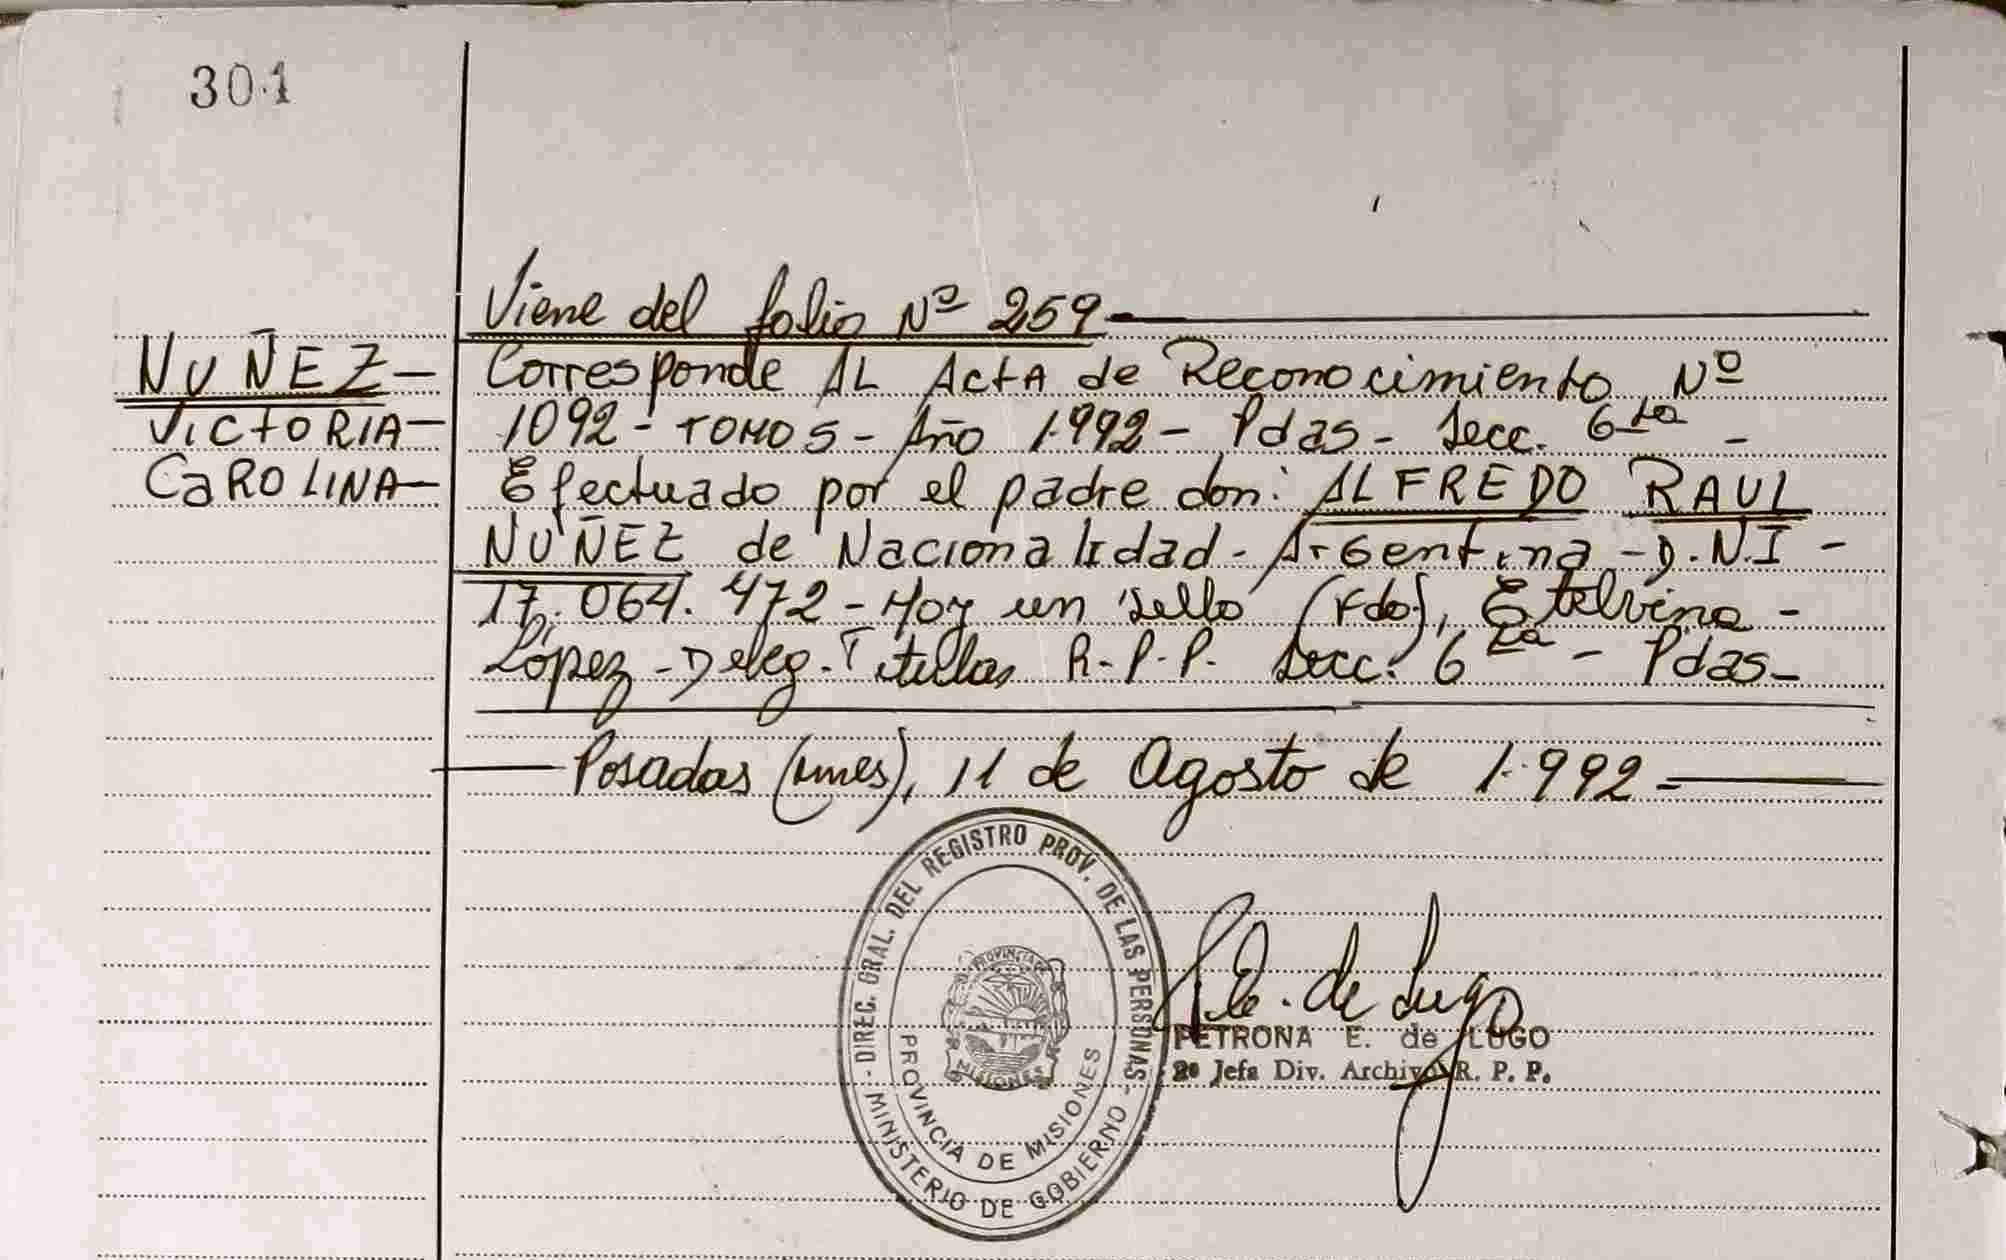 301
Viene del folio Nº 259
NUÑEZ-
VICTORIA-
CAROLINA-
Corresponde AL ActA de Reconocimiento Nº
1092 - TOMO 5 - Año 1.992 - Pdas - Secc. 6ta -
Efectuado por el padre don: ALFREDO RAUL
NUÑEZ de Nacionalidad - Argentina - D.N.I -
17.064.472 - Hay un sello (Fdo), Etelvina -
López - Deleg. Titular R.P.P. Secc. 6ta - Pdas -
Posadas (Mnes), 11 de Agosto de 1.992 -
- DIREC. GRAL. DEL REGISTRO PROV. DE LAS PERSONAS -
MINISTERIO DE GOBIERNO
PROVINCIA DE MISIONES
PROVINCIA
MISIONES
P.E. de Lugo
PETRONA E. de LUGO
2º Jefa Div. Archivo R. P. P.